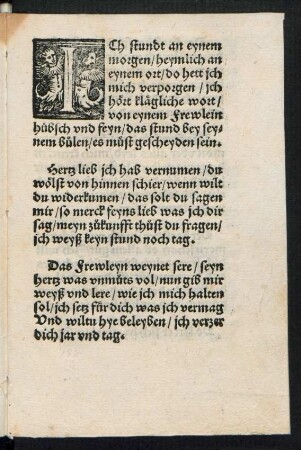 ICh stundt an eynem
morgen / heymlich an
eynem ort / do hett jch
mich verporgen / jch
hört klägliche wort /
von eynem Frewlein
hübsch vnd feyn / das stund bey sey-
nem bůlen / es můst gescheyden sein.
Hertz lieb jch hab vernumen / du
wölst von hinnen schier / wenn wilt
du widerkumen / das solt du sagen
mir / so merck feyns lieb was jch dir
sag / meyn zůkunfft thůst du fragen /
jch weyß keyn stund noch tag.
Das Frewleyn weynet sere / seyn
hertz was vnmůts vol / nun gib mir
weyß vnd lere / wie jch mich halten
sol / jch setz für dich was jch vermag
Vnd wiltu hye beleyben / jch verzer
dich jar vnd tag.